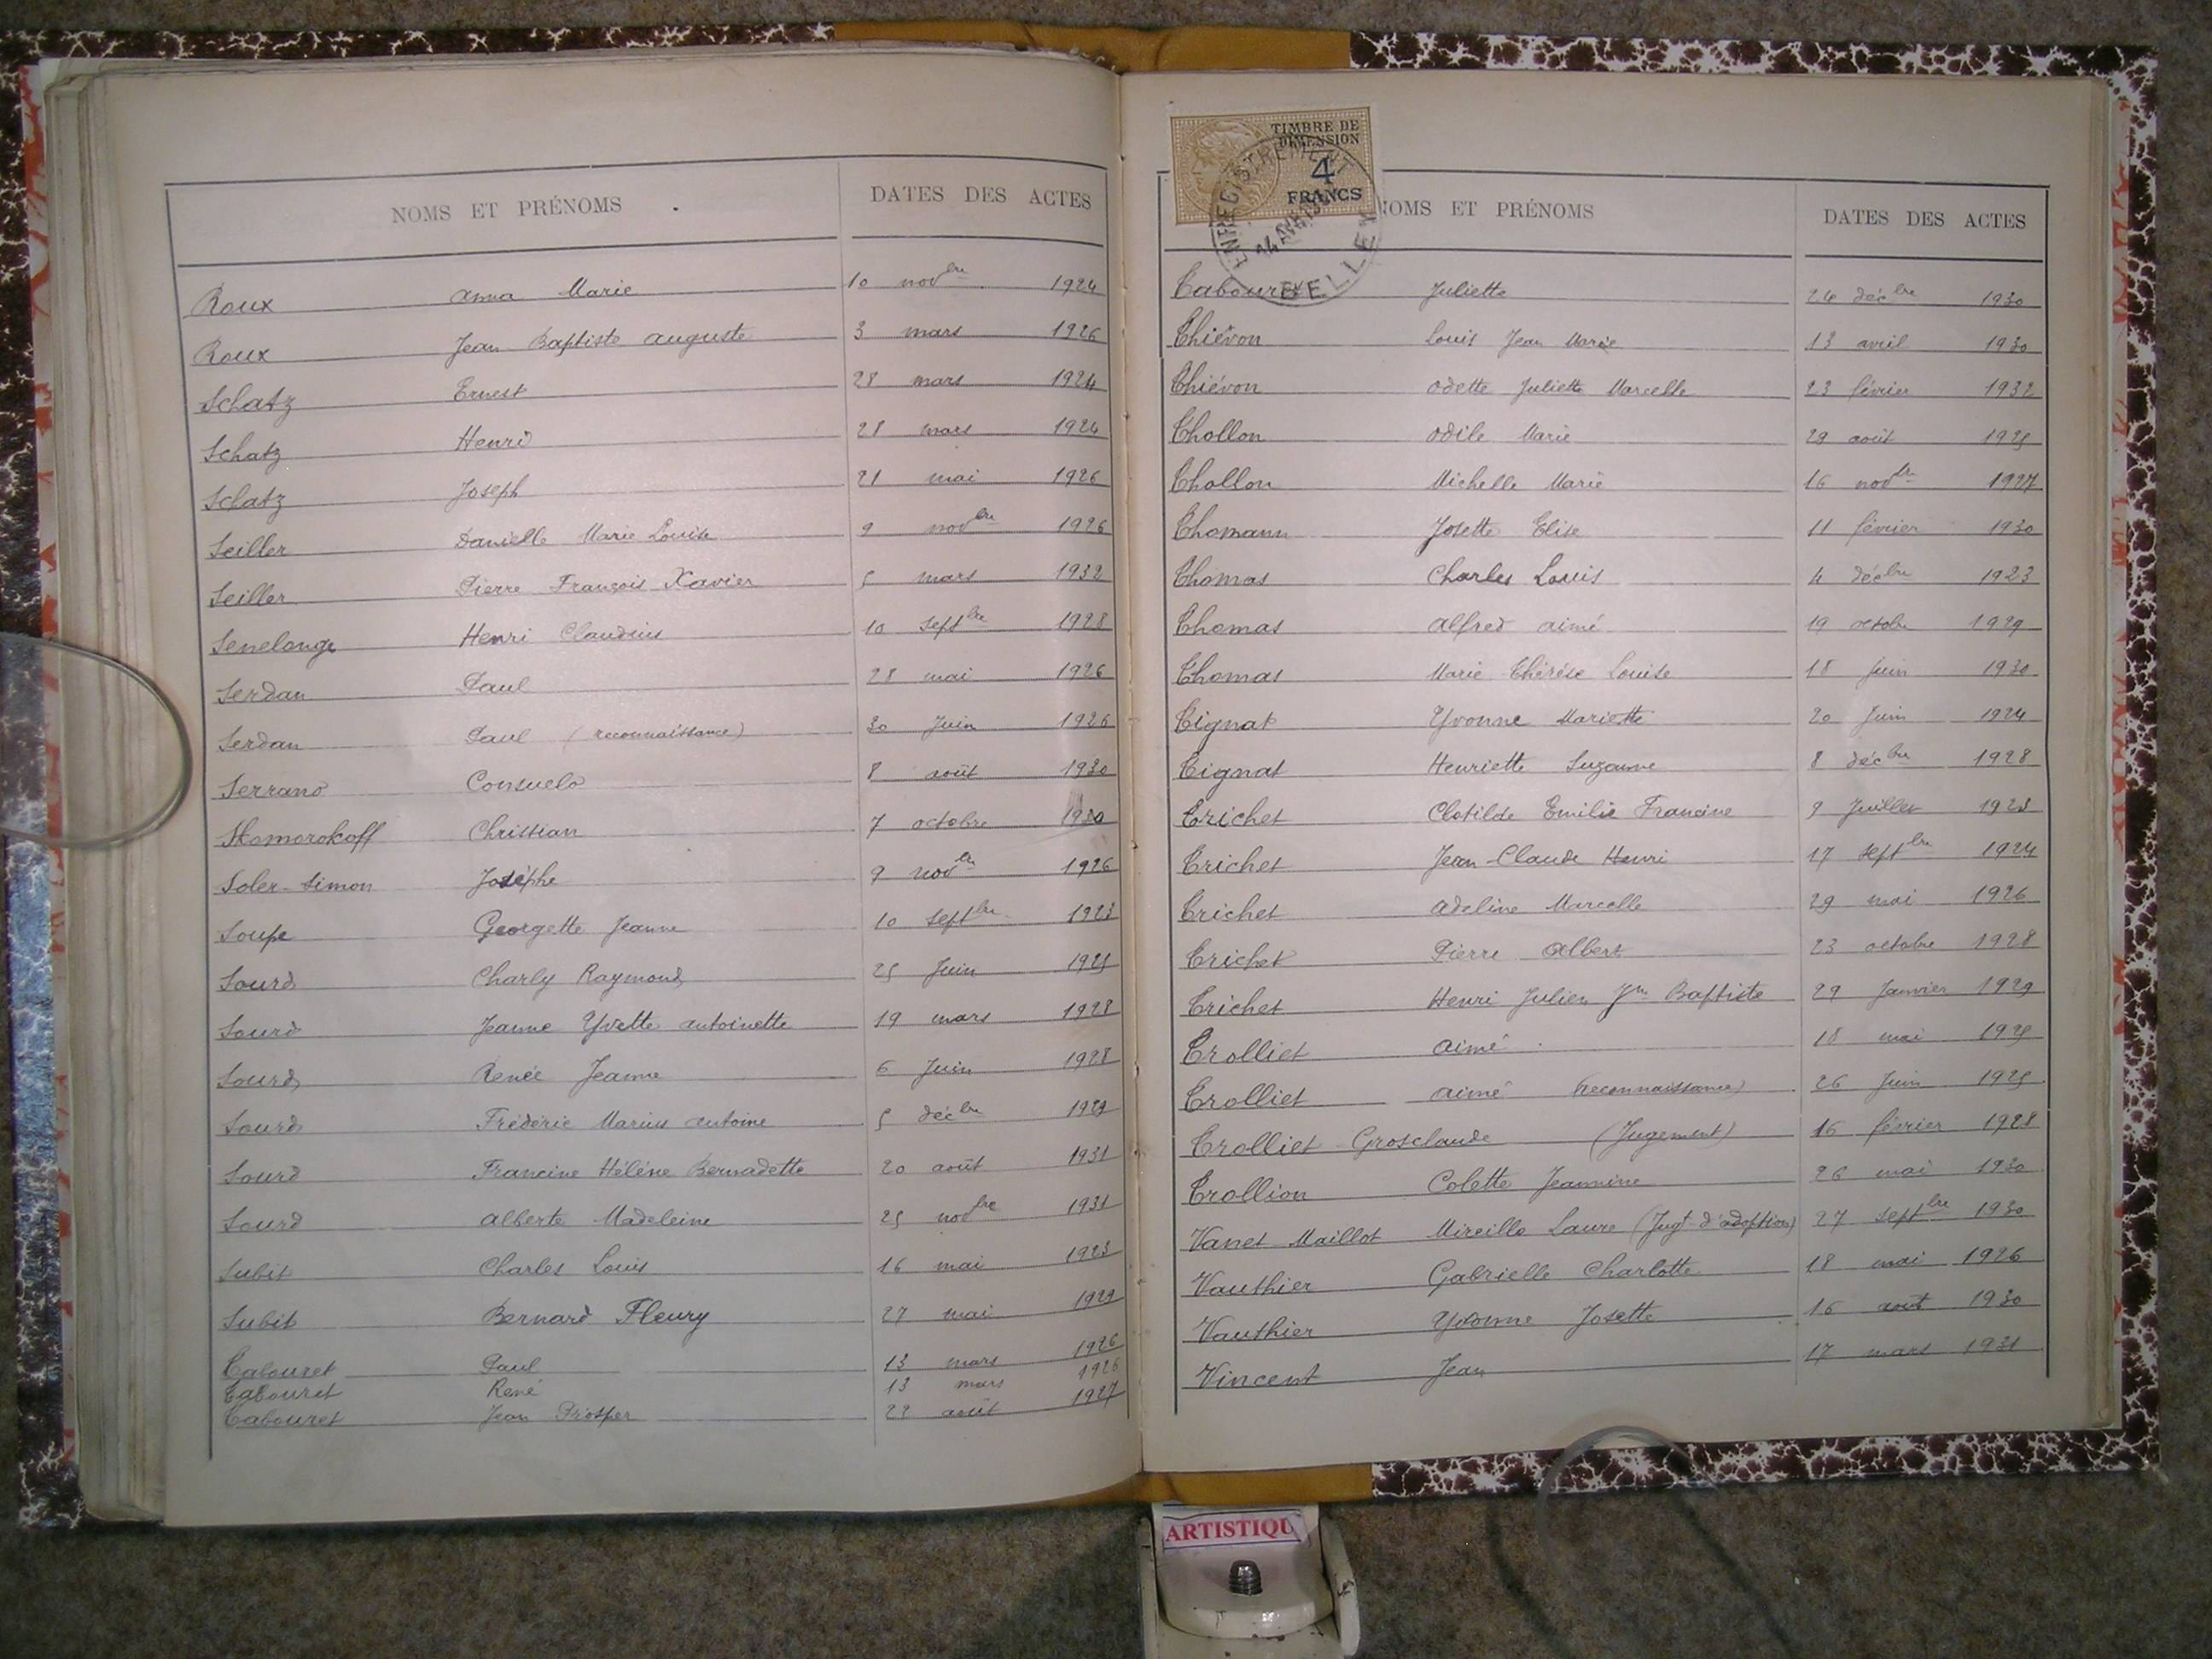 NOMS ET PRÉNOMS DATES DES ACTES
Roux Anna Marie 10 novbre 1924
Roux Jean Baptiste Auguste 3 mars 1926
Schatz Ernest 28 mars 1924
Schatz Henri 28 mars 1924
Schatz Joseph 21 mai 1926
Seiller Danielle Marie Louise 9 novbre 1926
Seiller Pierre François Xavier 5 mars 1932
Senelonge Henri Claudius 10 septbre 1928
Serdan Paul 28 mai 1926
Serdan Paul (reconnaissance) 30 Juin 1926
Serrano Consuelo 8 août 1930
Skomorokoff Christian 7 octobre
Soler-Simon Josèphe 9 novbre 1926
Soupe Georgette Jeanne 10 septbre 1923
Sourd Charly Raymond 25 Juin 1925
Sourd Jeanne Yvette Antoinette 19 mars 1928
Sourd Renée Jeanne 6 Juin 1928
Sourd Frédéric Marius Antoine 5 décbre 1929
Sourd Francine Hélène Bernadette 20 août 1931
Sourd Alberte Madeleine 25 novbre 1931
Subit Charles Louis 16 mai 1923
Subit Bernard Fleury 27 mai 1929
Tabouret Paul 13 mars 1926
Tabouret René 13 mars 1926
Tabouret Jean Prosper 22 août 1927
TIMBRE DE
DIMENSION
4
FRANCS
ENREGISTREMENT
14 AVR
BELLEY
NOMS ET PRÉNOMS DATES DES ACTES
Tabouret Juliette 24 décbre 1930
Thiévon Louis Jean Marie 13 avril 1930
Thiévon Odette Juliette Marcelle 23 février 1932
Thollon Odile Marie 29 août 1925
Thollon Michelle Marie 16 novbre 1927
Thomann Josette Elise 11 février 1930
Thomas Charles Louis 4 décbre 1923
Thomas Alfred Aimé 19 octobre 1929
Thomas Marie Thérèse Louise 18 Juin 1930
Tignat Yvonne Mariette 20 Juin 1924
Tignat Henriette Suzanne 8 décbre 1928
Trichet Clotilde Emilie Francine 9 Juillet 1923
Trichet Jean-Claude Henri 17 septbre 1924
Trichet Adeline Marcelle 29 mai 1926
Trichet Pierre Albert 23 octobre 1928
Trichet Henri Julien Jn Baptiste 29 Janvier 1929
Trolliet Aimé 18 mai 1925
Trolliet Aimé (reconnaissance) 26 Juin 1925
Trolliet Grosclaude (Jugement) 16 février 1928
Trollion Colette Jeannine 26 mai 1930
Vanet Maillot Mireille Laure (Jugt d'adoption) 27 septbre 1930
Vauthier Gabrielle Charlotte 18 mai 1926
Vauthier Yvonne Josette 16 août 1930
Vincent Jean 17 mars 1931
ARTISTIQU